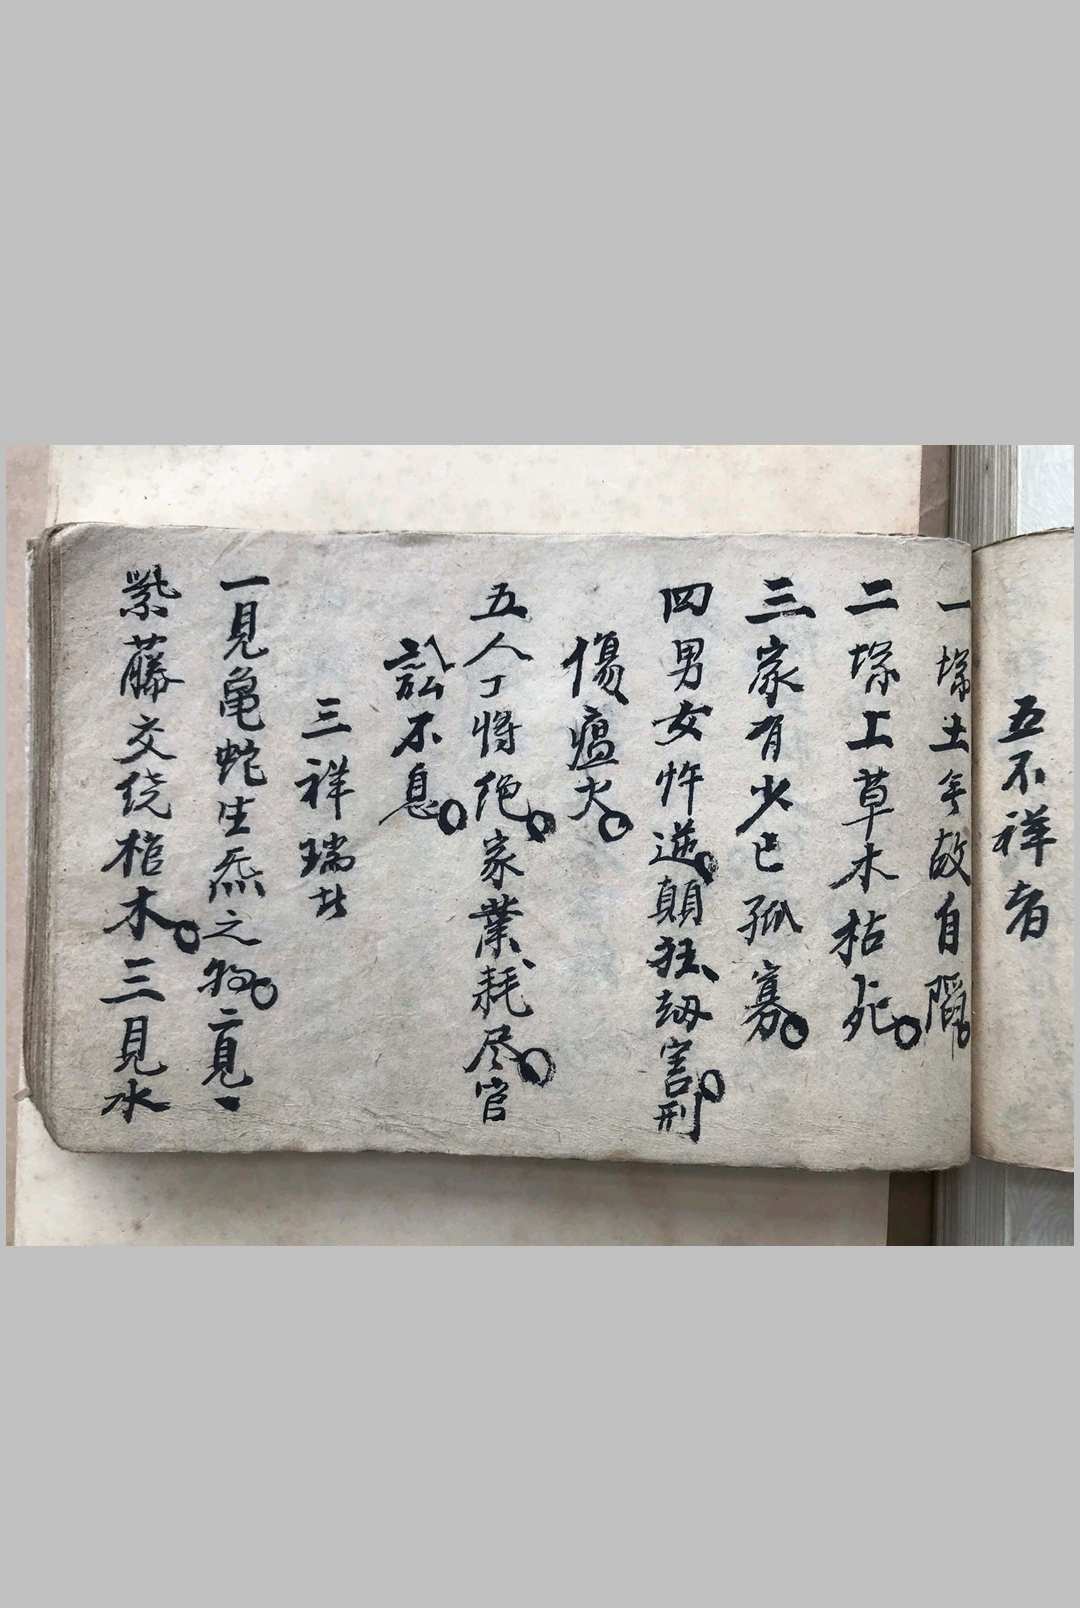 五不祥者
一塚土無故自陷。
二塚上草木枯死。
三家有少亡孤寡。
四男女忤逆。顛狂劫害。刑
傷瘟火。
五人丁將绝。家業耗尽。官
訟不息。
三祥瑞
一見亀蛇生炁之物。二見
紫藤交绕棺木。三見水